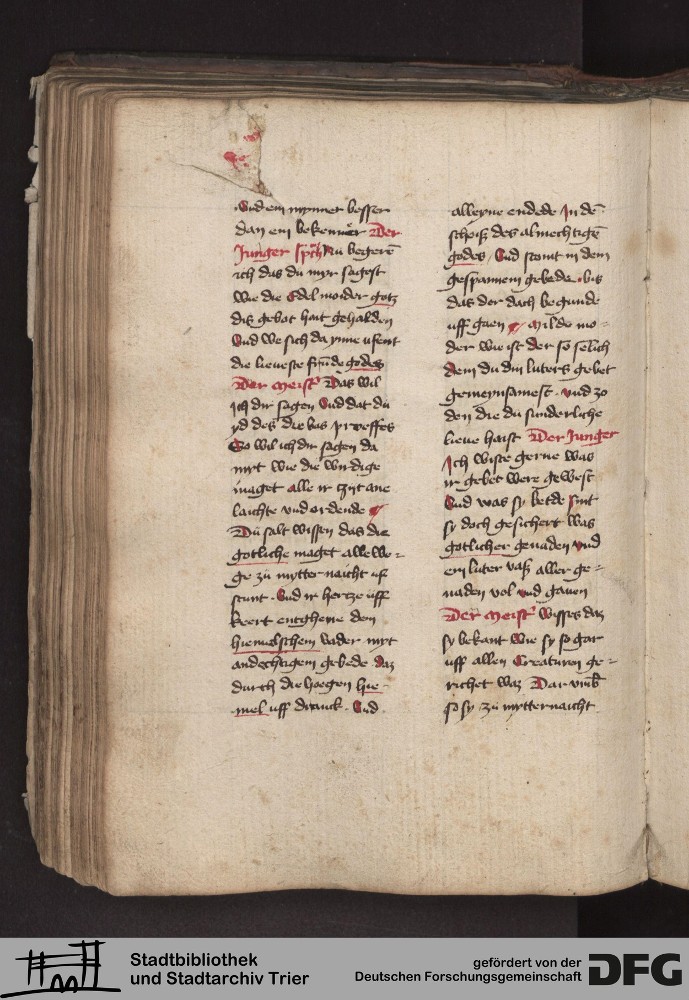 Vnd ein mynner besser
dan ein bekenner Der
Junger sprich Nu begere
ich das du myr sagest
wie die Edel moider gotz
dis gebot hait gehalden
Vnd we sich da ynne ufent
die lieueste frunde godes
Der meist Das wil
ich dir sagen Vnd dat du
yd des die bas
So wil ich dir sagen da
myt wie die wirdige
maget alle ir tzijt ane
laichte vnd ordende
Du salt wissen das die
gotliche maget alle we=
ge zu mytternaicht uf
stunt. Vnd ir hertze uff
keert entghene dem
hiemelschem vader myt
andechtigem gebede daz
durch die hoegen hie-
mel uff dranck. Vnd
alleyne endede in de
schoiß des almechtige
godes / Vnd stonit in dem
gespannem gebede. bis
das der dach begunde
uff gaen Milde mo=
der wie ist der so selich
dem du din luters gebet
gemeynsamest. vnd zo
den die du sunderliche
lieue haist Der Junger
Ich wiste gerne was
ir gebet were gewest
Vnd was sy betde sint
sy doch gesichert was
gotlicher genaden vnd
ein luter vaß aller ge=
naden vol vnd gauen
Der meist wisses daz
sy bekant wie sy so gar
uff allen Creaturen ge=
richet waz Dar vmb
so sy zu mytternaicht
Stadtbibliothek
und Stadtarchiv Trier
gefördert von der
Deutschen Forschungsgemeinschaft
DFG